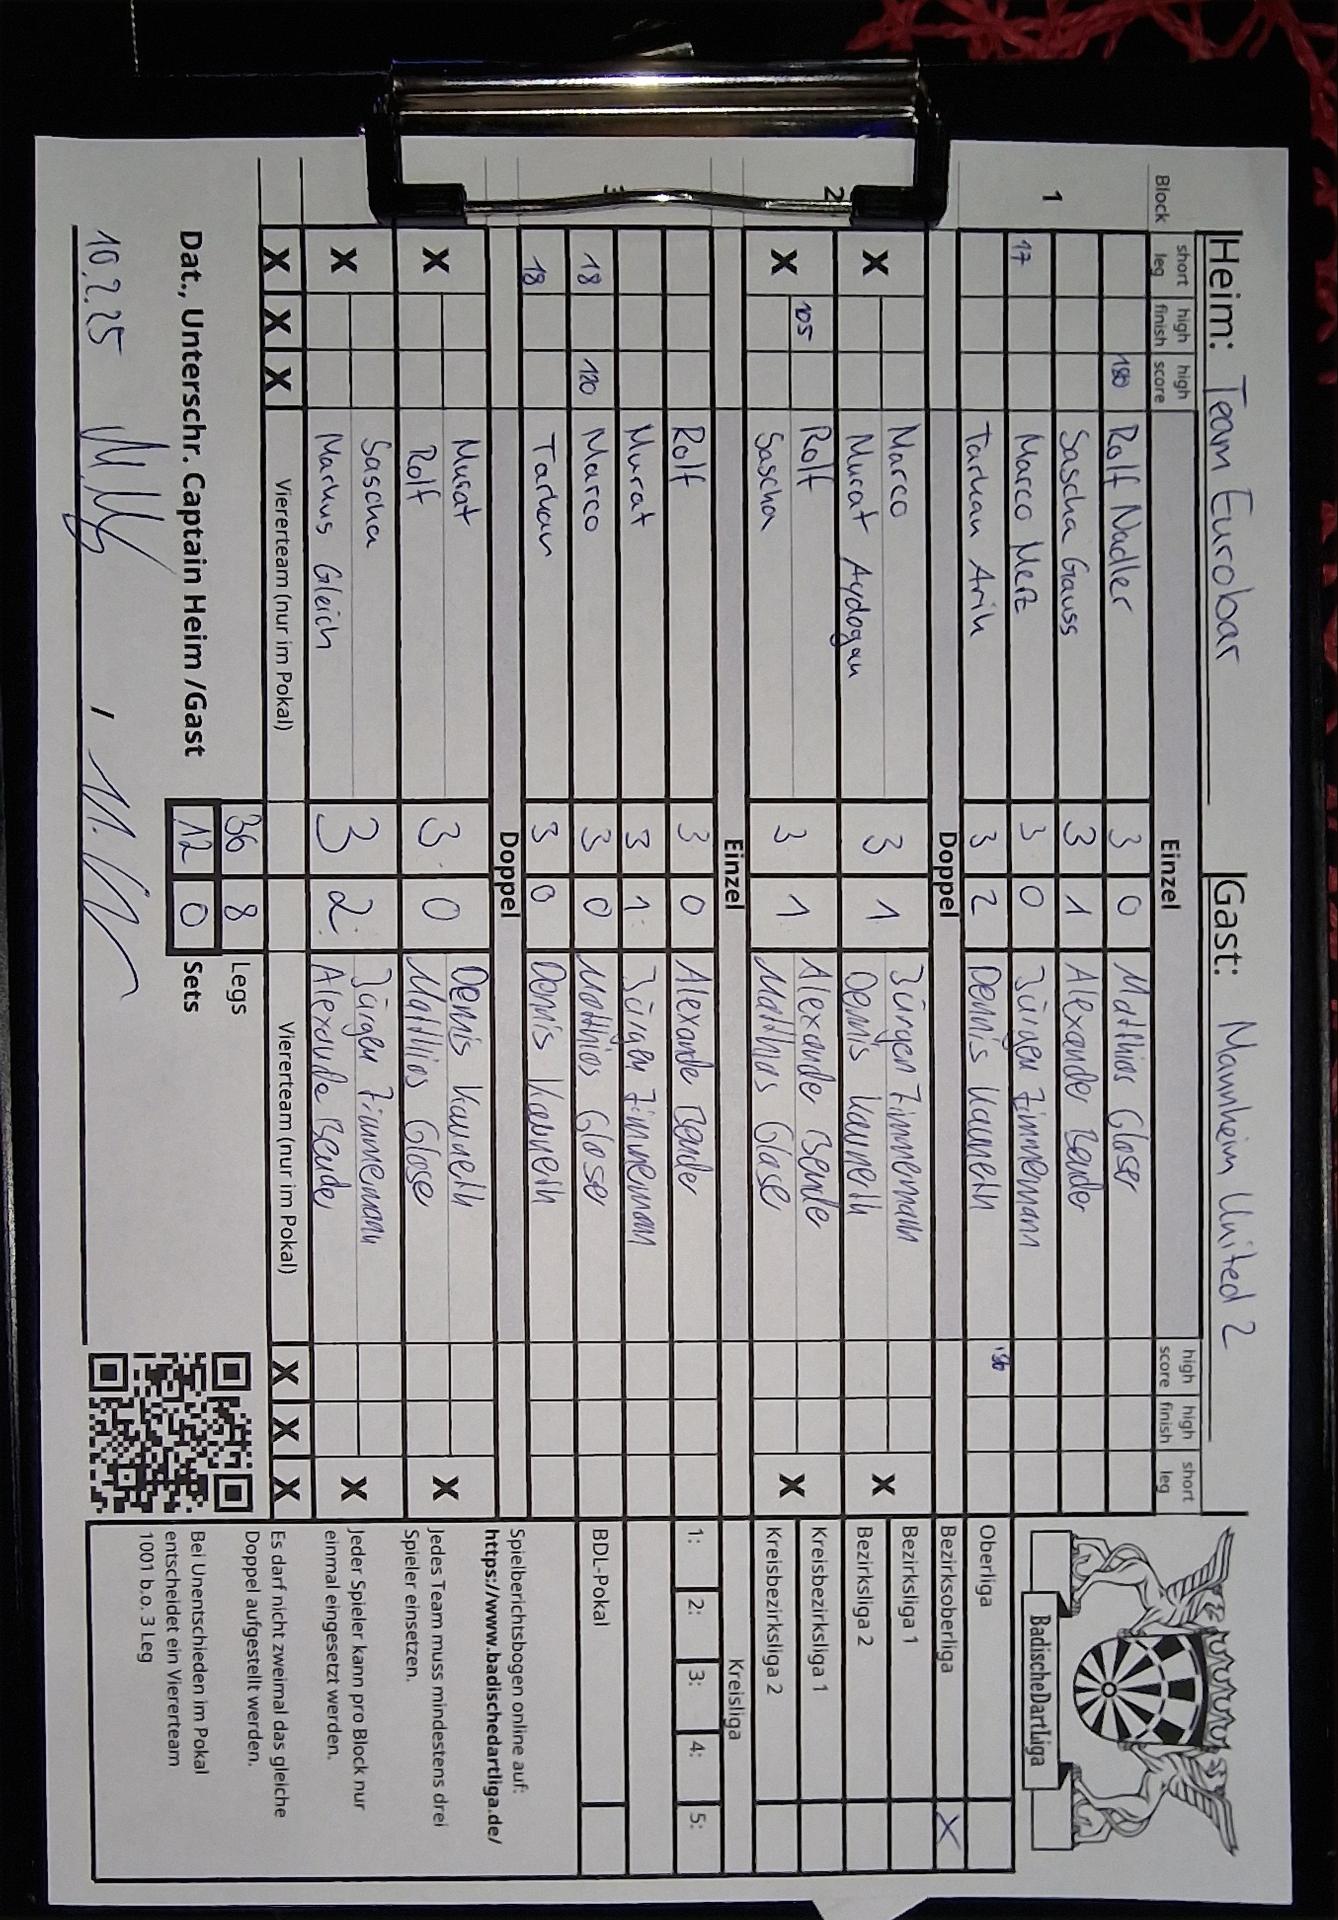 Heim: Team Eurobar Gast: Mannheim United 2
Block short leg high finish high score Einzel high score high finish short leg
1
180 Rolf Nadler 3 0 Mathias Glaser
Sascha Gauss 3 1 Alexander Bender
17 Marco Merz 3 0 Jürgen Zimmermann
Tarkan Arik 3 2 Dennis Kauneth 180
Doppel
2
X Marco 3 1 Jürgen Zimmermann X
Murat Aydogan Dennis Kauneth
X 105 Rolf 3 1 Alexande Bende X
Sascha Matthias Glase
Einzel
Rolf 3 0 Alexande Bender
Murat 3 1 Jürgen Zimmermann
18 120 Marco 3 0 Matthias Glaser
18 Tarkan 3 0 Dennis Kauneth
Doppel
X Murat 3 0 Dennis Kauneth X
Rolf Matthias Glose
X Sascha 3 2 Jürgen Zinnemann X
Markus Gleich Alexande Bende
X X X Viererteam (nur im Pokal) Viererteam (nur im Pokal) X X X
36 8 Legs
12 0 Sets
Dat., Unterschr. Captain Heim /Gast
10.2.25
BadischeDartLiga
Oberliga
Bezirksoberliga X
Bezirksliga 1
Bezirksliga 2
Kreisbezirksliga 1
Kreisbezirksliga 2
Kreisliga
1: 2: 3: 4: 5:
BDL-Pokal
Spielberichtsbogen online auf:
https://www.badischedartliga.de/
Jedes Team muss mindestens drei
Spieler einsetzen.
Jeder Spieler kann pro Block nur
einmal eingesetzt werden.
Es darf nicht zweimal das gleiche
Doppel aufgestellt werden.
Bei Unentschieden im Pokal
entscheidet ein Viererteam
1001 b.o. 3 Leg